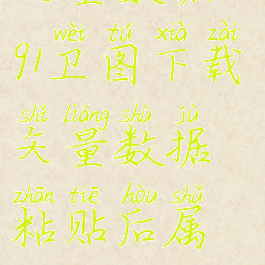 wèi tú xià zài
91卫图下载
shǐ liáng shù jù
矢量数据
zhān tiē hòu shǔ
粘贴后属